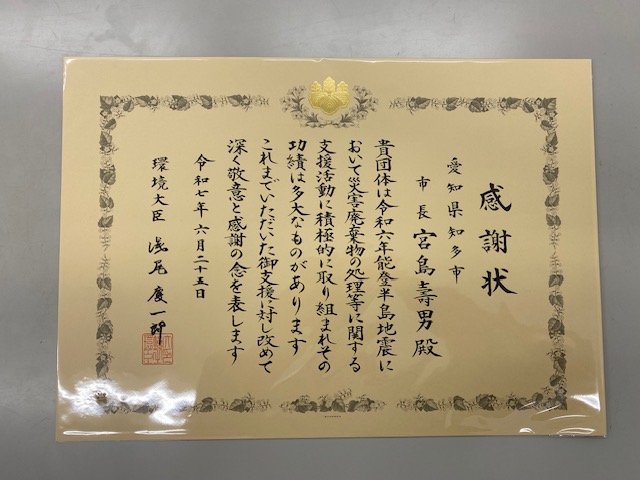 感謝状
愛知県知多市
市長 宮島壽男殿
貴団体は令和六年能登半島地震に
おいて災害廃棄物の処理等に関する
支援活動に積極的に取り組まれその
功績は多大なものがあります
これまでいただいた御支援に対し改めて
深く敬意と感謝の念を表します
令和七年六月二十五日
環境大臣 浅尾慶一郎